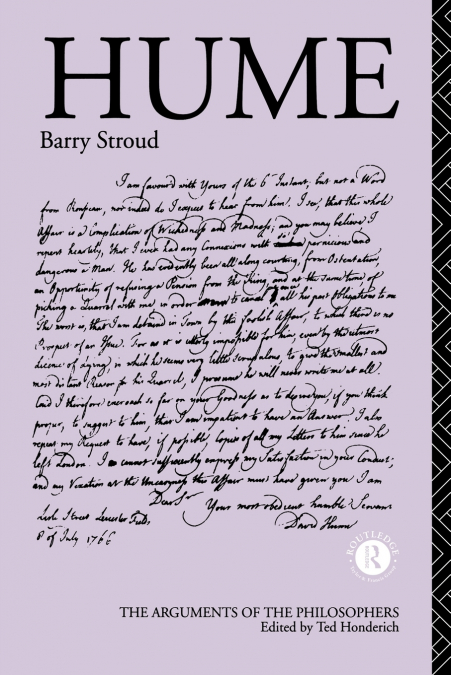 HUME
Barry Stroud
I am favour'd with Yours of the 6 Instant, but not a Word
from Rousseau, nor indeed do I expect to hear from him. I see, that this whole
Affair is a Complication of Wickedness and Madness; and you may believe I
repent heartily, that I ever had any Connexions with so pernicious and
dangerous a Man. He has evidently been all along courting, from Ostentation,
an Opportunity of refusing a Pension from the King, and at the same time of
picking a Quarrel with me in order to cancel all his past Obligations to me
The worst is, that I am detained in Town by this foolish Affair, to which there is no
Prospect of an Issue. For as it is utterly impossible for him, even by the utmost
Licence of Lying, in which he seems very little scrupulous, to give the smallest and
most distant Reason for his Quarrel, I presume he will never wrote me at all.
Coud I therefore encroach so far on your Goodness as to desire you, if you think
proper, to suggest to him, that I am impatient to have an Answer. I also
repeat my Request to have, if possible, Copies of all my Letters to him since he
left London. I cannot sufficiently express my Satisfaction in your Conduct;
and my Vexation at the Uneasyness this Affair must have given you I am
Dear Sir
Your most obedient humble Servant
Lisle Street Leicester Fields
David Hume
8 of July 1766
ROUTLEDGE
R
Taylor & Francis Group
THE ARGUMENTS OF THE PHILOSOPHERS
Edited by Ted Honderich